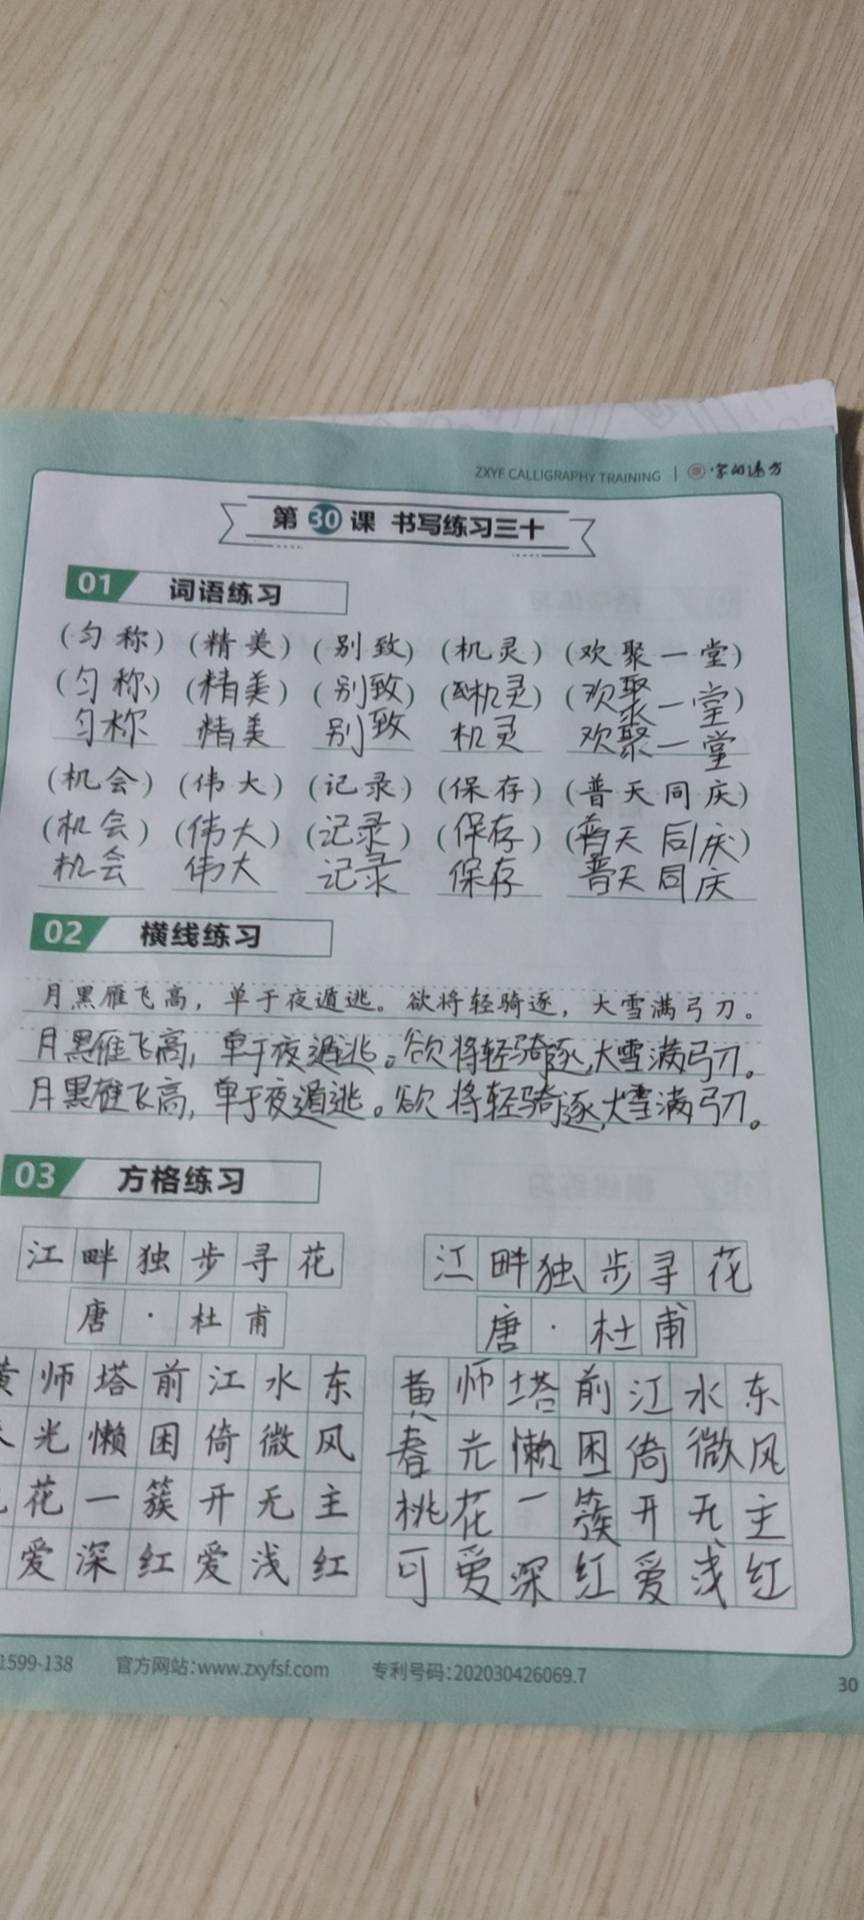 ZXYF CALLIGRAPHY TRAINING | 字的逐方
第30课 书写练习三十
01 词语练习
(匀称) (精美) (别致) (机灵) (欢聚一堂)
(匀称) (精美) (别致) (机灵) (欢聚一堂)
匀称 精美 别致 机灵 欢聚一堂
(机会) (伟大) (记录) (保存) (普天同庆)
(机会) (伟大) (记录) (保存) (普天后庆)
机会 伟大 记录 保存 普天同庆
02 横线练习
月黑雁飞高，单于夜遁逃。欲将轻骑逐，大雪满弓刀。
月黑雁飞高，单于夜遁逃。欲将轻骑逐，大雪满弓刀。
月黑雁飞高，单于夜遁逃。欲将轻骑逐，大雪满弓刀。
03 方格练习
江畔独步寻花
唐·杜甫
黄师塔前江水东
光懒困倚微风
花一簇开无主
爱深红爱浅红
江畔独步寻花
唐·杜甫
黄师塔前江水东
春光懒困倚微风
桃花一簇开无主
可爱深红爱浅红
1599-138 官方网站：www.zxyfsf.com 专利号码：202030426069.7
30